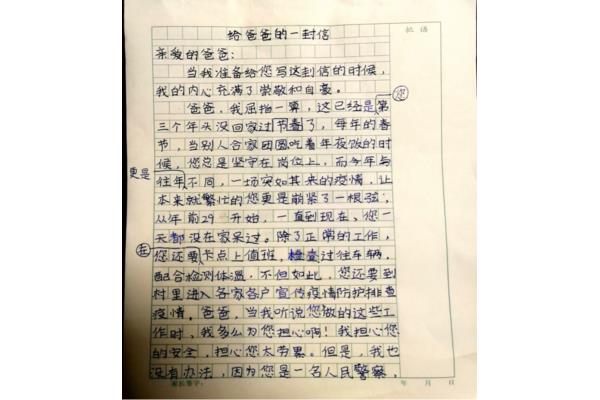 给爸爸的一封信
批语
亲爱的爸爸：
当我准备给您写这封信的时候，
我的内心充满了崇敬和自豪。
爸爸，我屈指一算，这已经是第
您
三个年头没回家过节了，每年的春
节，当别人合家团圆吃着年夜饭的时
候，您总是坚守在岗位上，而今年与
更是
往年不同，一场突如其来的疫情，让
本来就繁忙的您更是崩紧了一根弦，
从年前29开始，一直到现在，您一
天都没在家呆过。除了正常的工作，
在
您还要卡点上值班，检查过往车辆，
配合检测体温，不但如此，您还要到
村里进入各家各户宣传疫情防护排查
疫情。爸爸，当我听说您做的这些工
作时，我多么为您担心啊！我担心您
的安全，担心您太劳累。但是，我也
没有办法，因为您是一名人民警察，
家长签字：
年 月 日